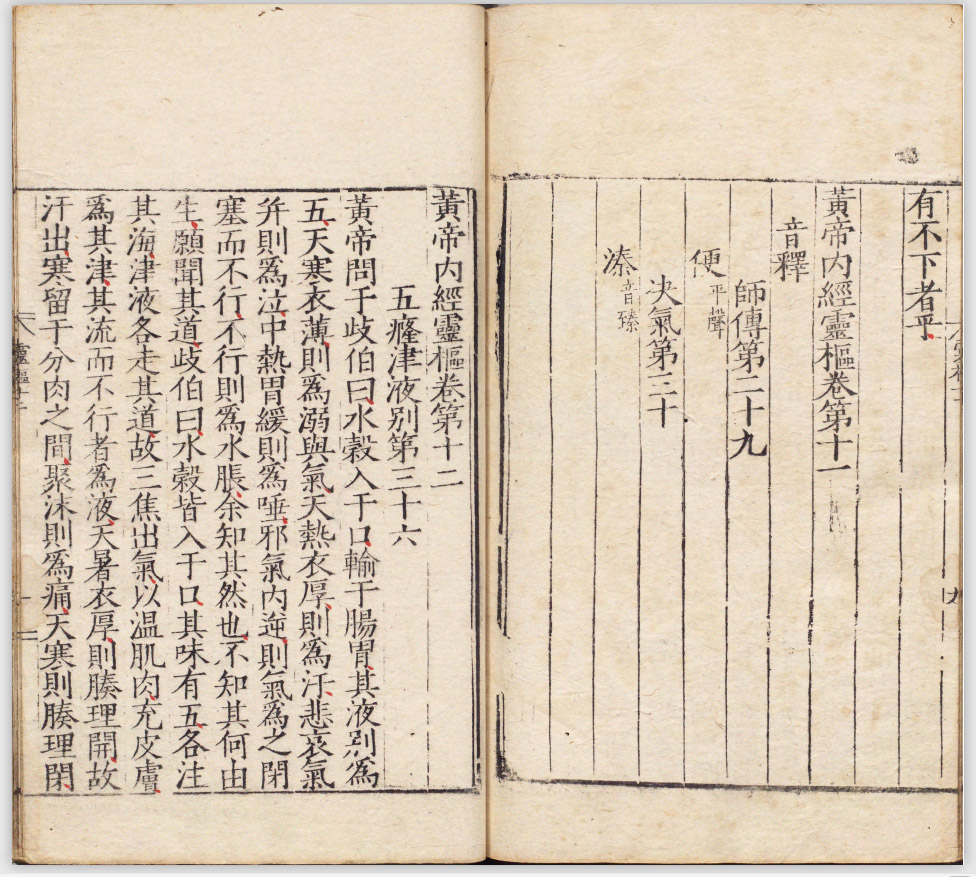 有不下者乎
黃帝内經靈樞卷第十一
音釋
師傳第二十九
便平聲
决氣第三十
溱音臻
黃帝内經靈樞卷第十二
五癃津液别第三十六
黃帝問于歧伯曰水穀入于口輸于腸胃其液别爲
五天寒衣薄則爲溺與氣天熱衣厚則爲汗悲哀氣
并則爲泣中熱胃緩則爲唾邪氣内逆則氣爲之閉
塞而不行不行則爲水脹余知其然也不知其何由
生願聞其道歧伯曰水穀皆入于口其味有五各注
其海津液各走其道故三焦出氣以温肌肉充皮膚
爲其津其流而不行者爲液天暑衣厚則腠理開故
汗出寒留于分肉之間聚沫則爲痛天寒則腠理閉